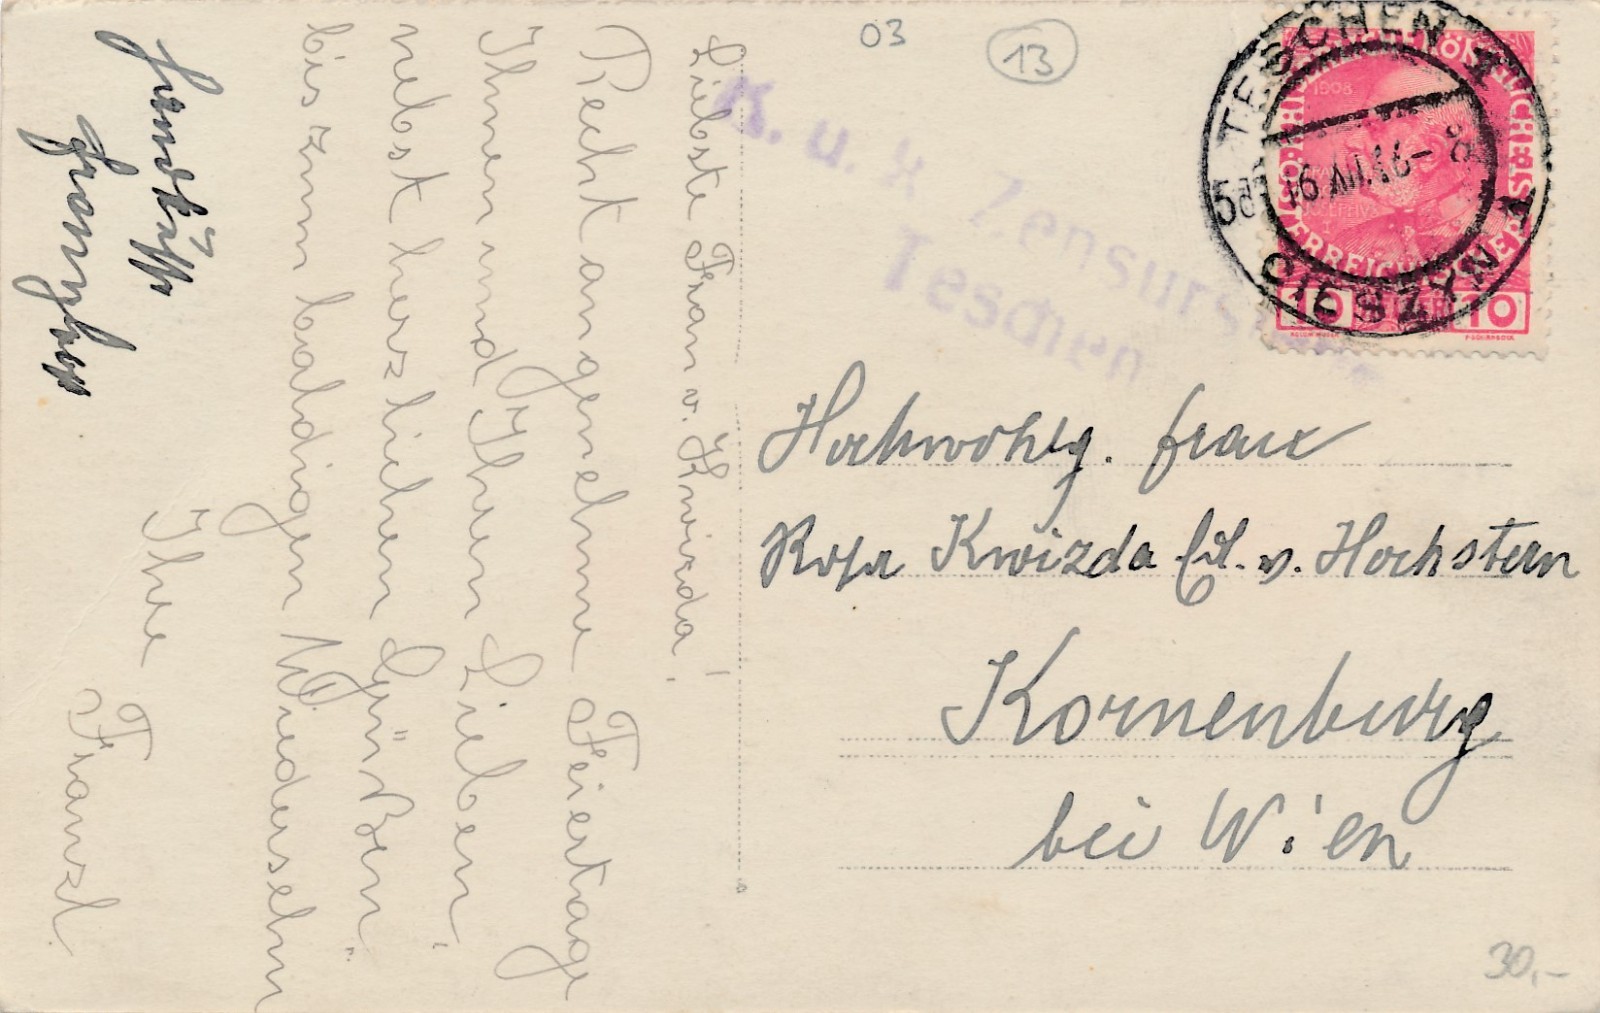 03
13
Liebste Frau v. Kwizda!
Recht angenehme Feiertage
Ihnen und Ihren Lieben,
nebst herzlichen Grüßen
bis zum baldigen Wiedersehn
Ihre
Franzl.
K. u. k. Zensurs
Teschen
TESCHEN 1
5d 16.XII.16-8
CIESZYN 1
1908
10 HELLER 10
Hochwohlg. Frau
Rosa Kwizda Edl. v. Hochstern
Korneuburg
bei Wien
30,-